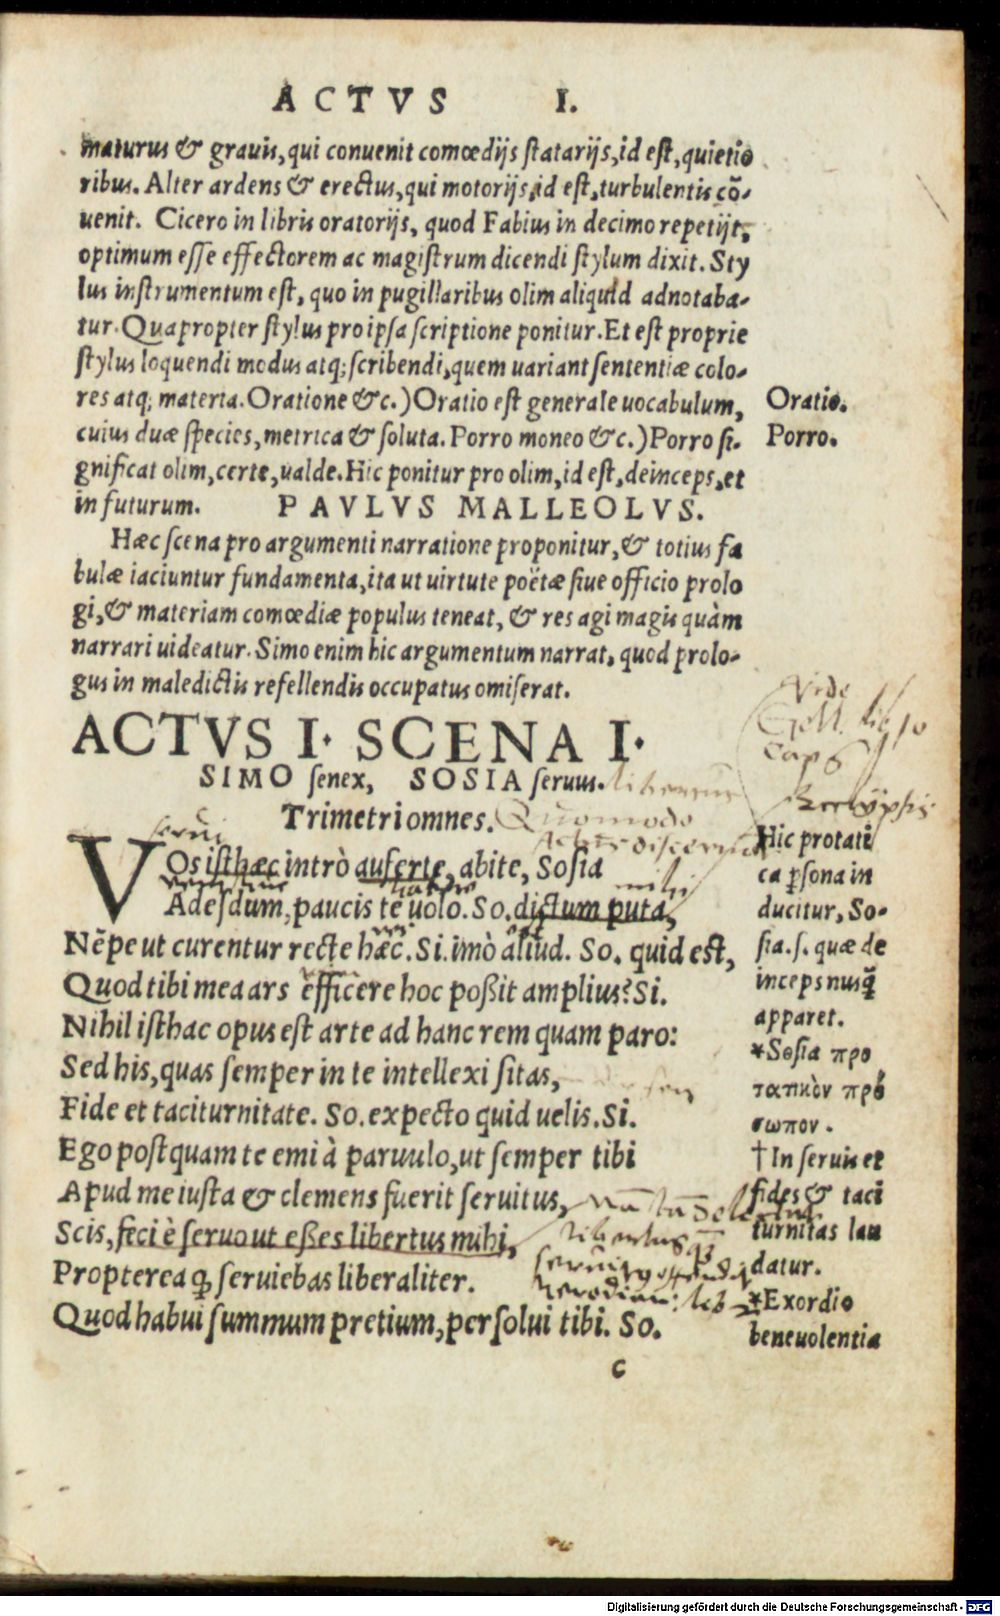 ACTVS I.
maturus & grauis, qui conuenit comœdijs statarijs, id est, quietio
ribus. Alter ardens & erectus, qui motorijs, id est, turbulentis cō-
uenit. Cicero in libris oratorijs, quod Fabius in decimo repetijt,
optimum esse effectorem ac magistrum dicendi stylum dixit. Sty
lus instrumentum est, quo in pugillaribus olim aliquid adnotaba-
tur. Quapropter stylus pro ipsa scriptione ponitur. Et est proprie
stylus loquendi modus atq; scribendi, quem uariant sententiæ colo-
res atq; materia. Oratione &c.) Oratio est generale uocabulum,
Oratio.
cuius duæ species, metrica & soluta. Porro moneo &c.) Porro si-
Porro.
gnificat olim, certe, ualde. Hic ponitur pro olim, id est, deinceps, et
in futurum. PAVLVS MALLEOLVS.
Hæc scena pro argumenti narratione proponitur, & totius fa
bulæ iaciuntur fundamenta, ita ut uirtute poëtæ siue officio prolo
gi, & materiam comœdiæ populus teneat, & res agi magis quàm
narrari uideatur. Simo enim hic argumentum narrat, quod prolo-
gus in maledictis refellendis occupatus omiserat.
ACTVS I. SCENA I.
SIMO senex, SOSIA seruus.
Trimetri omnes.
Quomodo
serui
VOs isthæc intrò auferte, abite, Sosia
Adesdum, paucis te uolo. So. dictum puta,
mihi
Nēpe ut curentur recte hæc. Si. imò aliud. So. quid est,
Quod tibi mea ars efficere hoc poßit amplius? Si.
Nihil isthac opus est arte ad hanc rem quam paro:
Sed his, quas semper in te intellexi sitas,
Fide et taciturnitate. So. expecto quid uelis. Si.
Ego postquam te emi à paruulo, ut semper tibi
Apud me iusta & clemens fuerit seruitus,
Scis, feci è seruo ut eßes libertus mihi,
Propterea ꝙ seruiebas liberaliter.
Quod habui summum pretium, persolui tibi. So.
Vide
Hic protati
ca ꝑsona in
ducitur, So-
sia. s. quæ de
inceps nusq̃
apparet.
*Sosia προ
τατικὸν πρό
σωπον.
†In seruis et
fides & taci
turnitas lau
datur.
*Exordio
beneuolentia
c
Digitalisierung gefördert durch die Deutsche Forschungsgemeinschaft - DFG